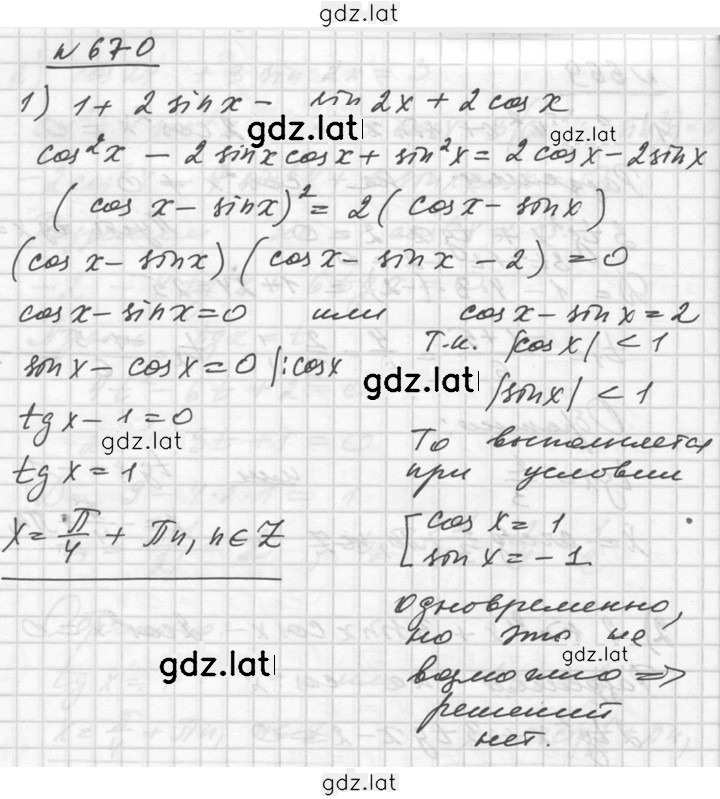 gdz.lat
№ 670
1) 1 + 2 sin x − sin 2x + 2 cos x
gdz.lat gdz.lat
cos²x − 2 sin x cos x + sin²x = 2 cos x − 2 sin x
(cos x − sin x)² = 2 (cos x − sin x)
(cos x − sin x) (cos x − sin x − 2) = 0
cos x − sin x = 0 или cos x − sin x = 2
sin x − cos x = 0 |: cos x
gdz.lat
tg x − 1 = 0
gdz.lat
tg x = 1
x = π/4 + πn, n ∈ Z
Т.к. |cos x| < 1
|sin x| < 1
То выполняется
при условии
[cos x = 1
sin x = −1
одновременно,
но это не
gdz.lat gdz.lat
возможно =>
решений
нет.
gdz.lat
gdz.lat